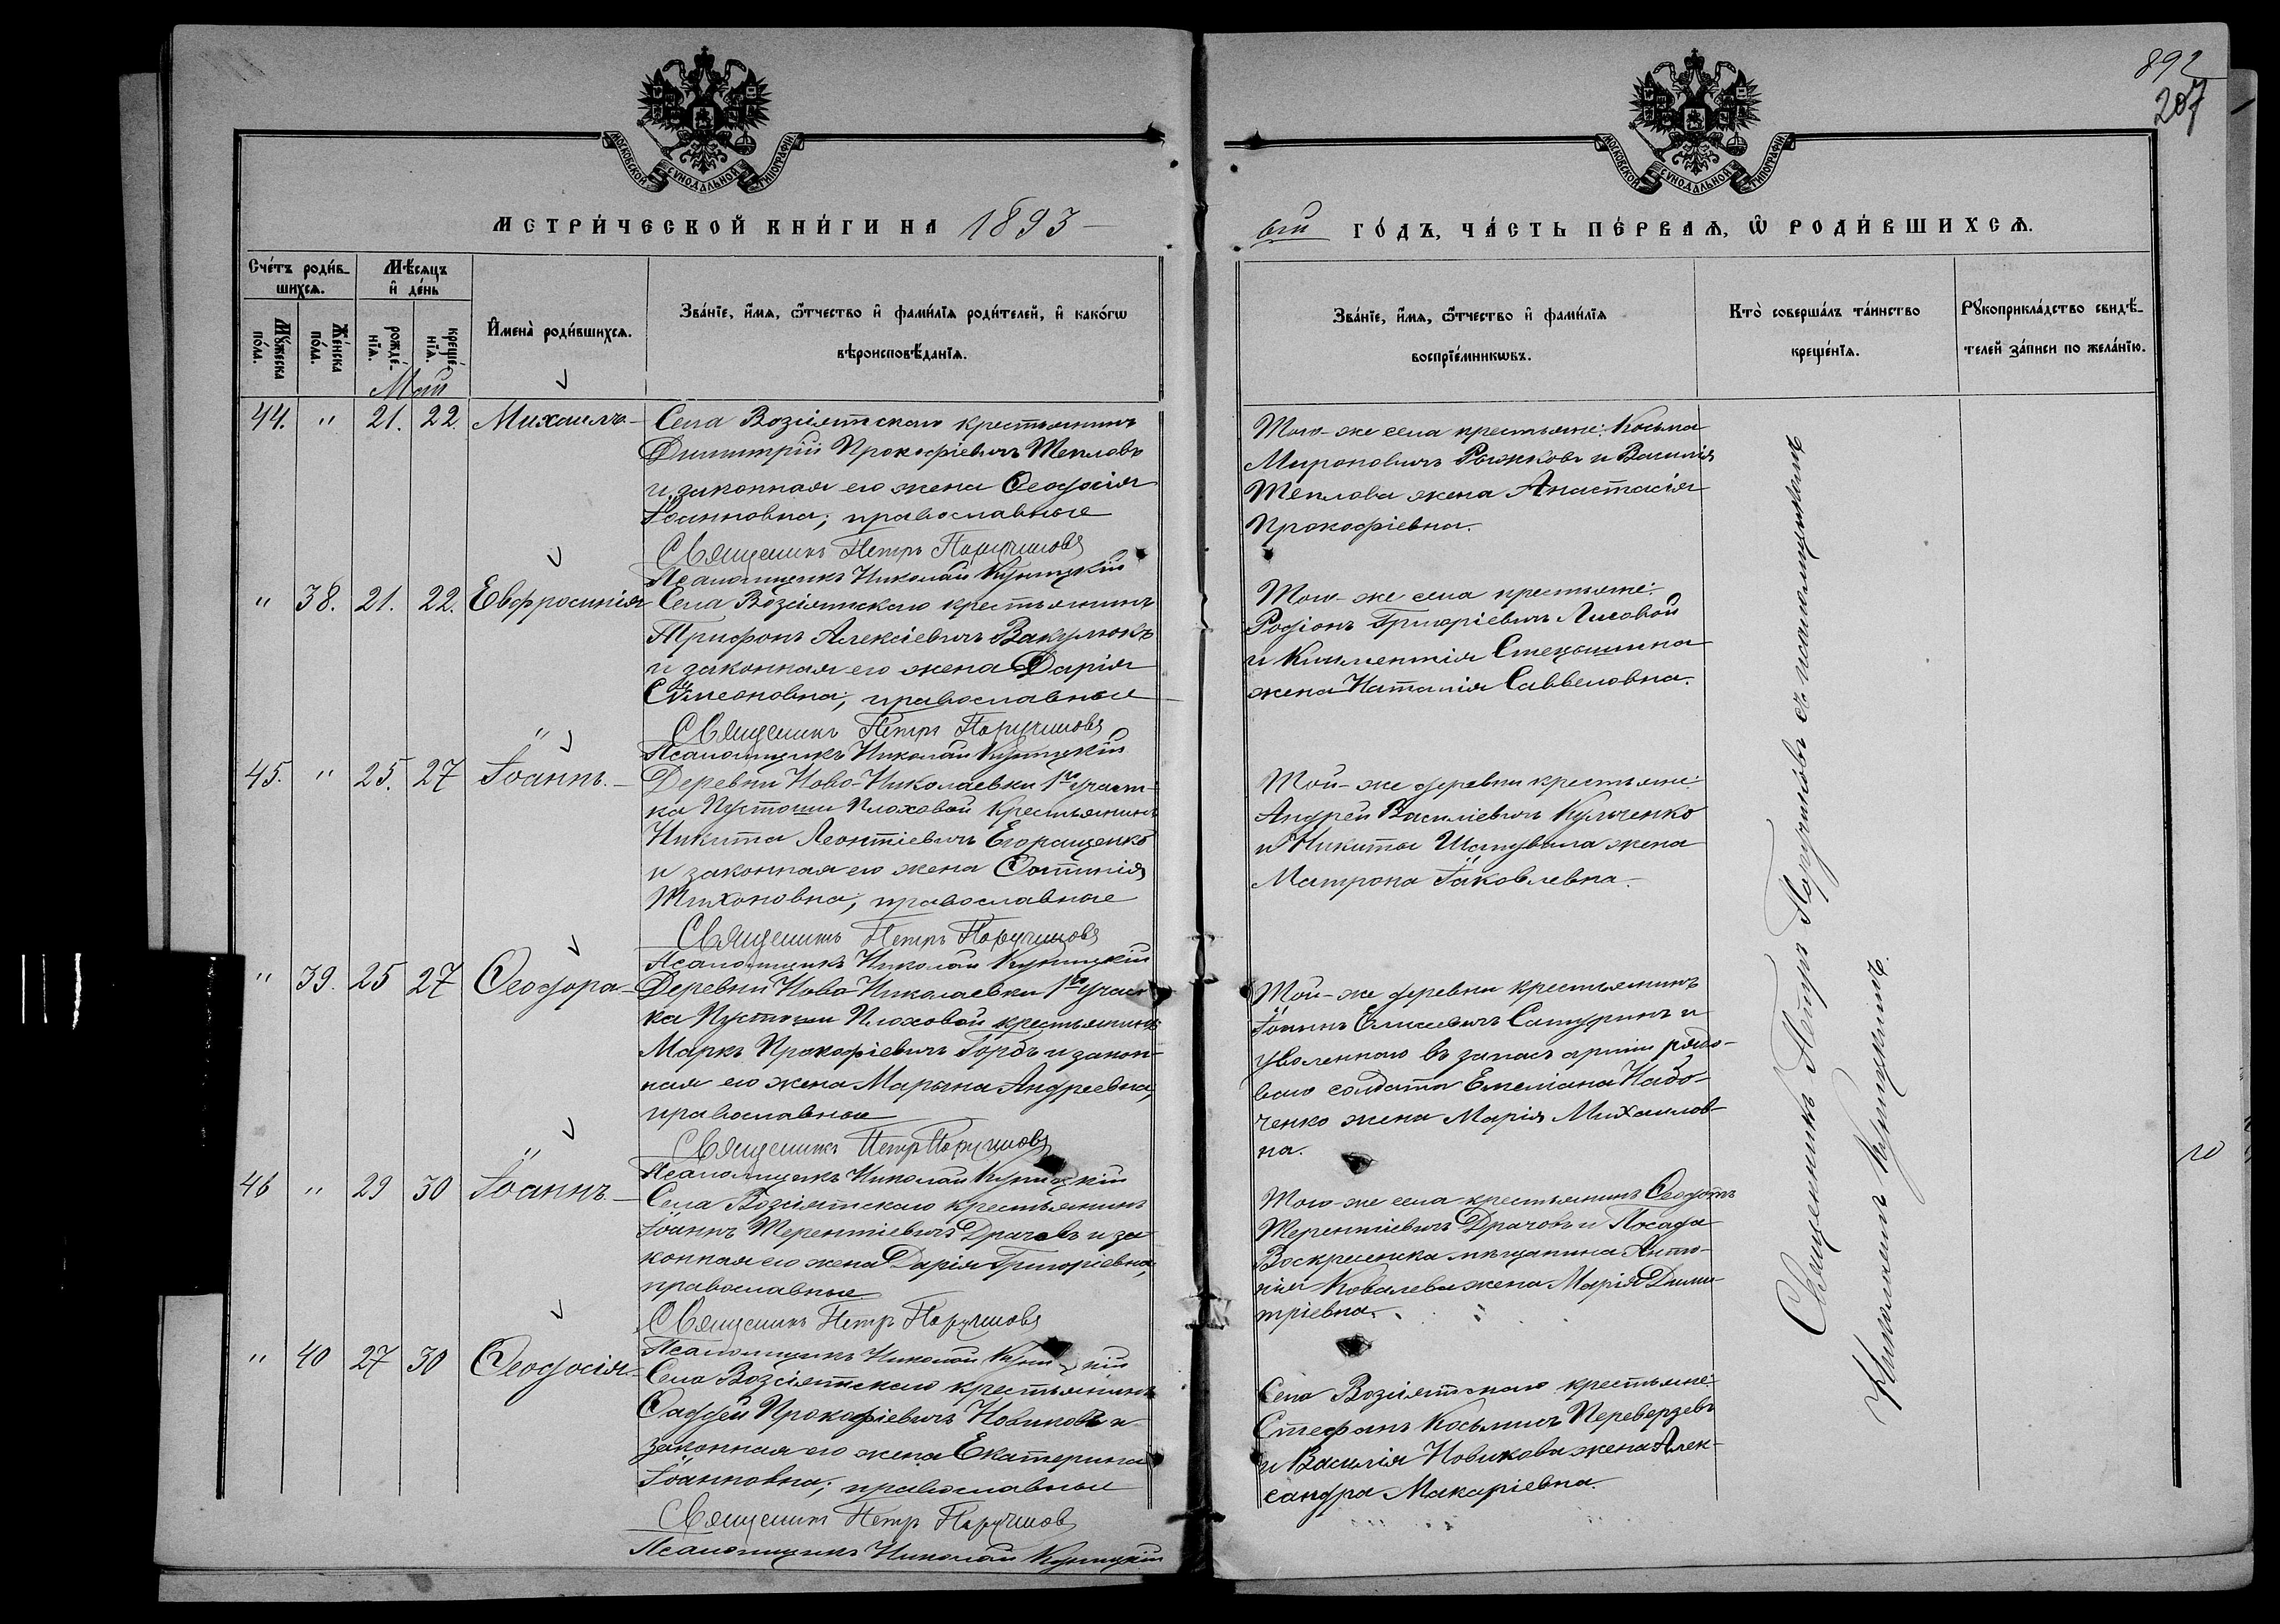 892
207
МОСКОВСКОЙ СѴНОДАЛЬНОЙ ТИПОГРАФІИ
МОСКОВСКОЙ СѴНОДАЛЬНОЙ ТИПОГРАФІИ
МЕТРИ́ЧЕСКОЙ КНИ́ГИ НА 1893-
вій ГО́ДЪ, ЧА́СТЬ ПЕ́РВАѦ, Ѡ҆ РОДИ́ВШИХСѦ.
Сче́тъ роди́в-
шихсѧ.
Мѣ́сяцъ
и҆ де́нь
Му́жеска по́ла.
Же́нска по́ла.
рожде́-
нїѧ.
креще́-
нїѧ.
И҆мена̀ роди́вшихсѧ.
Зва́нїе, и҆́мѧ, ѻ҆́тчество и҆ фами́лїѧ роди́телей, и҆ како́гѡ
вѣроисповѣ́данїѧ.
Зва́нїе, и҆́мѧ, ѻ҆́тчество и҆ фами́лїѧ
воспрїе́мникѡвъ.
Кто̀ соверша́лъ та́инство
креще́нїѧ.
Рꙋкоприкла́дство свидѣ́-
телей за́писи по жела́нїю.
Май
44. " 21. 22. Михаилъ.
Села Возсіятскаго крестьянинъ
Димитрій Прокофіевичъ Тепловъ
и законная его жена Ѳеодосія
Іоанновна; православные
Священникъ Петръ Поручиковъ
Псаломщикъ Николай Куницкій
Того-же села крестьяне: Косьма
Мироновичъ Рыжковъ и Василія
Теплова жена Анастасія
Прокофіевна.
" 38. 21. 22. Евфросинія
Села Возсіятскаго крестьянинъ
Трифонъ Алексіевичъ Вакулюкъ
и законная его жена Дарія
Симеоновна; православные
Священникъ Петръ Поручиковъ
Псаломщикъ Николай Куницкій
Того-же села крестьяне:
Родіонъ Григоріевичъ Лисовой
и Стецышина
жена Наталія Саввеловна.
45. " 25. 27 Іоаннъ.
Деревни Ново-Николаевки 1го участ-
ка Пустоши Плоховой крестьянинъ
Никита Леонтіевичъ Егоращенко
и законная его жена Фотинія
Тихоновна; православные
Священникъ Петръ Поручиковъ
Псаломщикъ Николай Куницкій
Той-же деревни крестьяне:
Андрей Василіевичъ Кульченко
и Никиты Шапувала жена
Матрона Іаковлевна.
" 39. 25 27 Ѳеодора
Деревни Ново-Николаевки 1го участ
ка Пустоши Плоховой крестьянинъ
Маркъ Прокофіевичъ Горбъ и закон-
ная его жена Марьяна Андреевна,
православные
Священникъ Петръ Поручиковъ
Псаломщикъ Николай Куницкій
Той-же деревни крестьянинъ
Іоаннъ Елисеевичъ Сатуринъ и
уволеннаго въ запасъ арміи рядо-
ваго солдата Емеліана Набо-
ченко жена Марія Михаилов-
на.
46 " 29 30 Іоаннъ
Села Возсіятскаго крестьянинъ
Іоаннъ Терентіевичъ Драчевъ и за-
конная его жена Дарія Григоріевна,
православные
Священникъ Петръ Поручиковъ
Псаломщикъ Николай Куницкій
Того-же села крестьянинъ Ѳеодотъ
Терентіевичъ Драчовъ и Посада
Воскресенска мѣщанина Анто-
нія Ковалева жена Марія Дими-
тріевна.
" 40 27 30 Ѳеодосія
Села Возсіятскаго крестьянинъ
Ѳаддей Прокофіевичъ Новиковъ и
законная его жена Екатерина
Іоанновна; православные
Священникъ Петръ Поручиковъ
Псаломщикъ Николай Куницкій
Села Возсіятскаго крестьяне:
Стефанъ Косьмичъ Переверзевъ
и Василія Новикова жена Алек-
сандра Макаріевна.
Священникъ Петръ Поручиковъ съ псаломщикомъ
Николаемъ Куницкимъ.